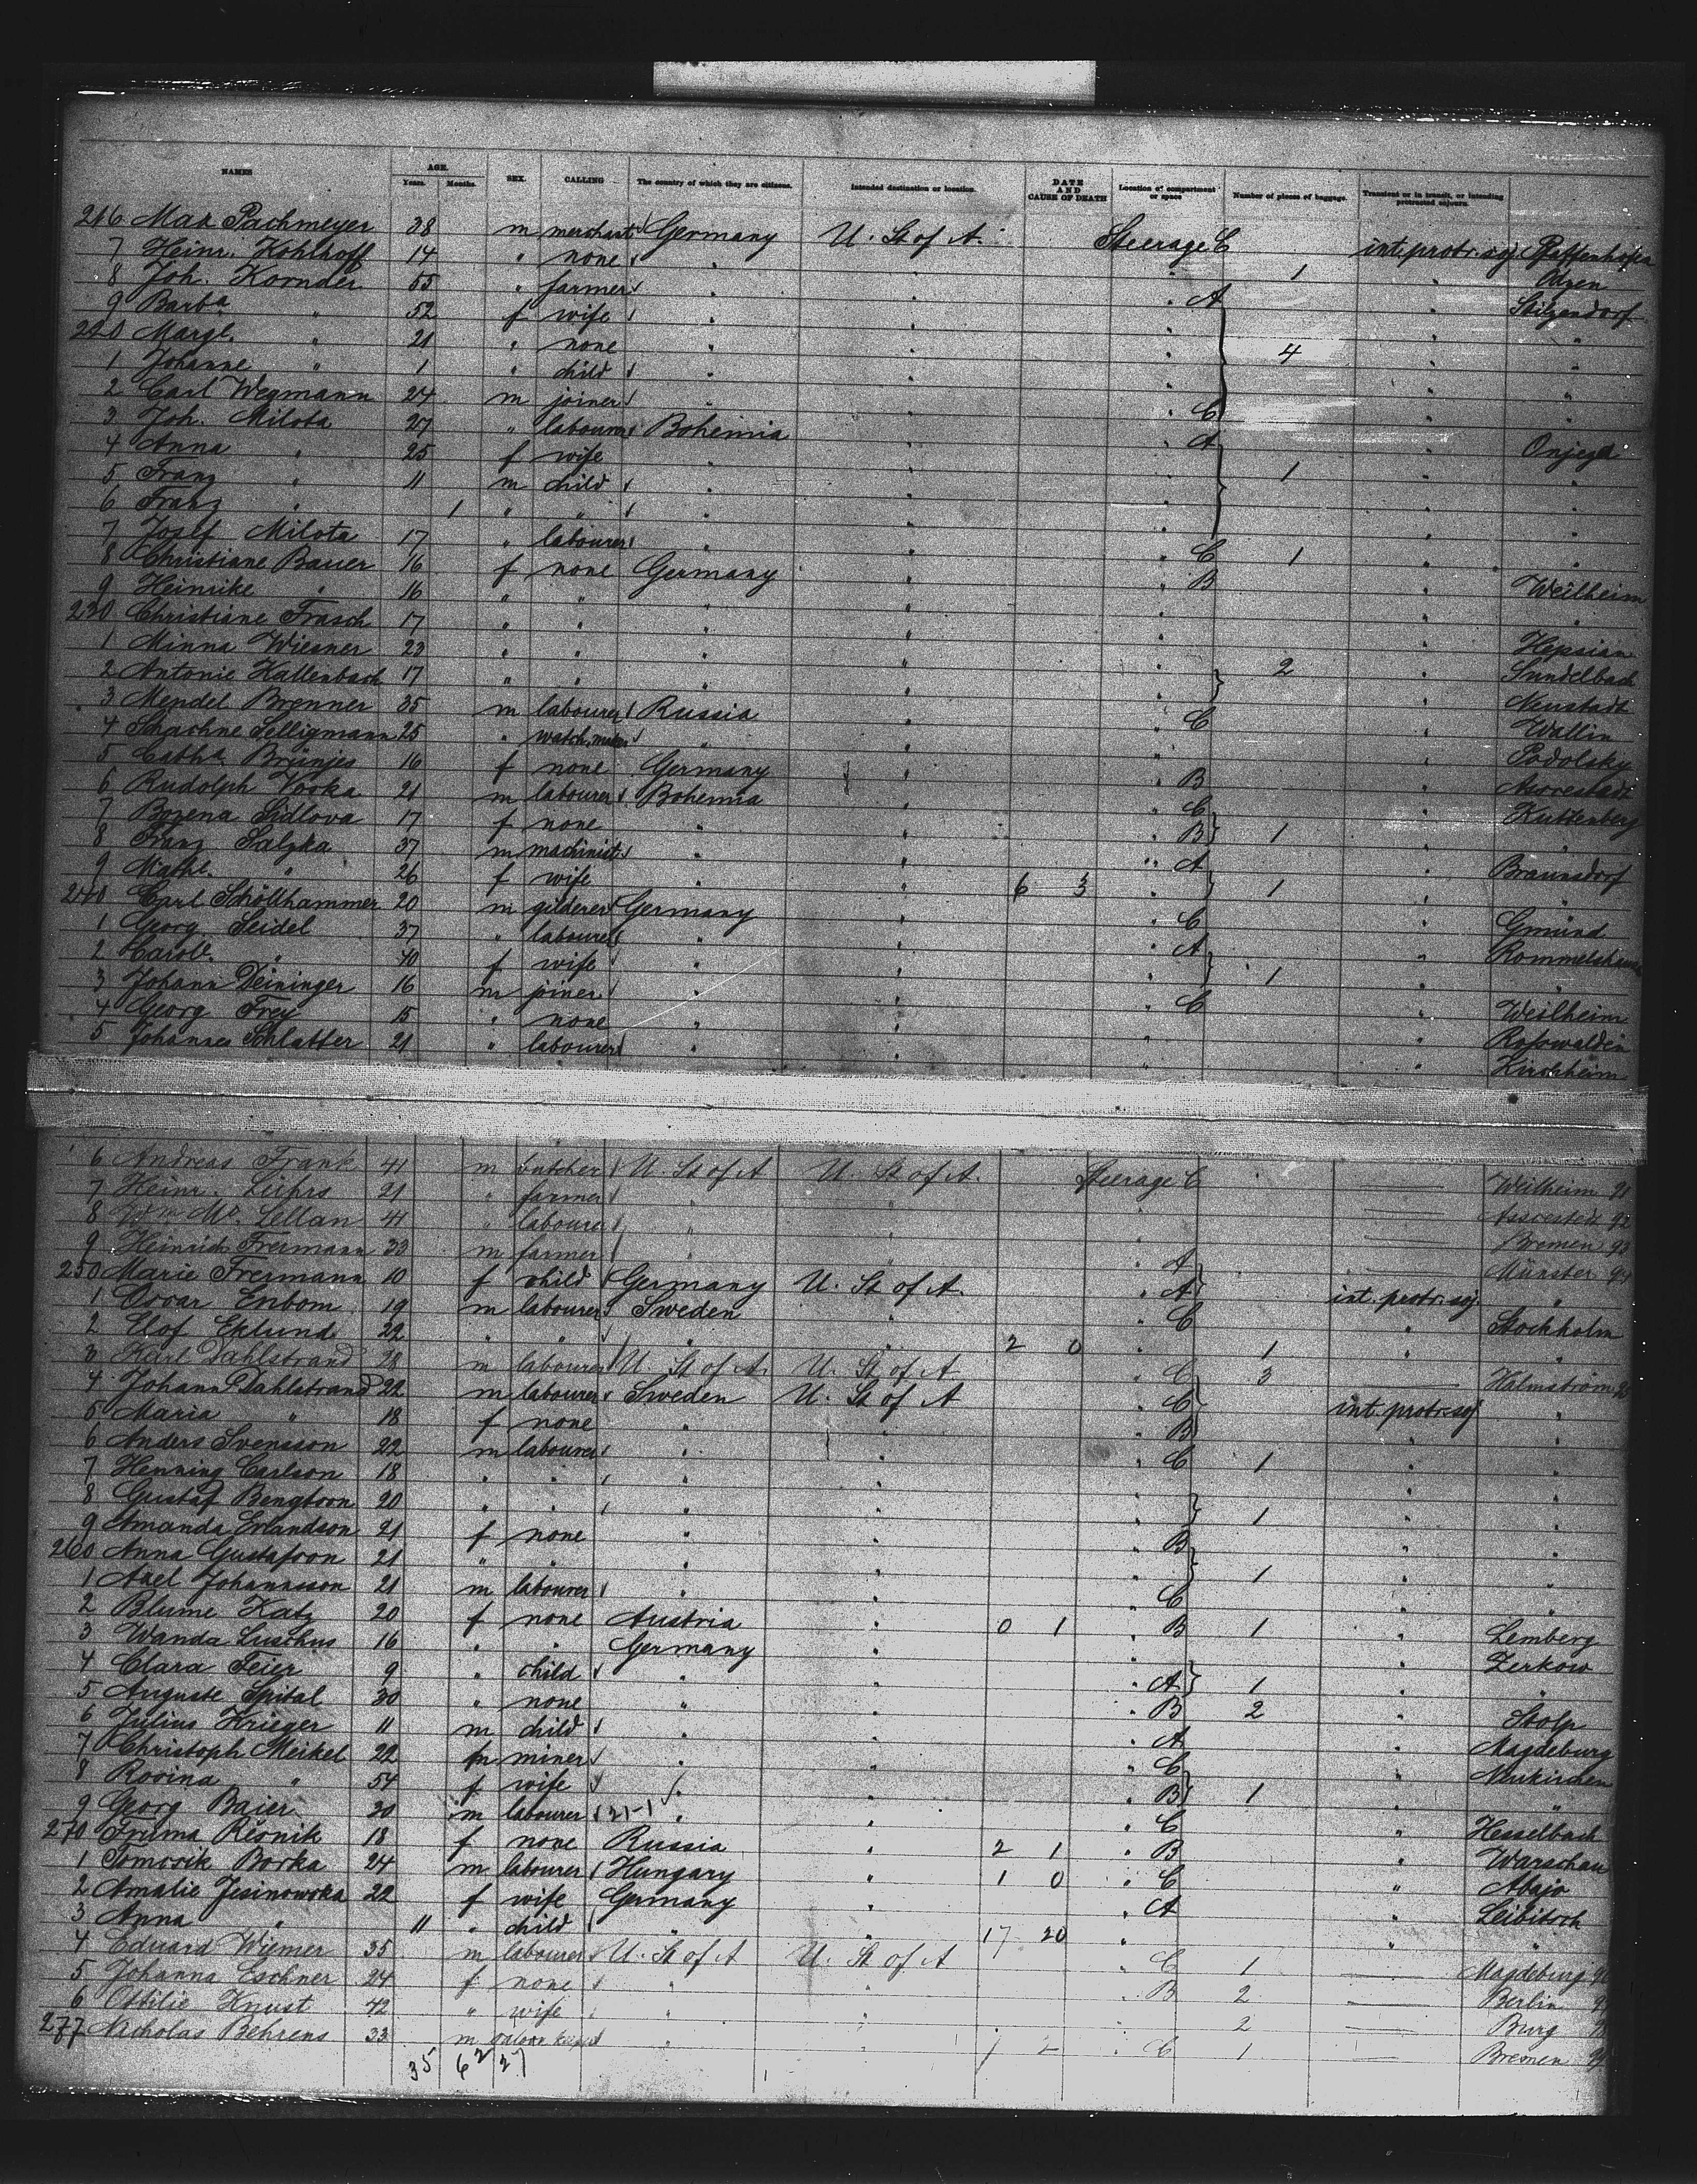 NAMES AGE. Years. Months. SEX. CALLING The country of which they are citizens. Intended destination or location. DATE AND CAUSE OF DEATH Location of compartment or space Number of pieces of baggage. Transient or in transit, or intending protracted sojourn.
216 Max Pachmeyer 38 m merchant Germany U. St of A. Steerage C int. protr. soj. Pfaffenhofen
7 Heinr. Kohlhoff 14 " none " " 1 "
8 Joh. Kornder 55 " farmer " " " A " Stilzendorf
9 Barba " 52 f wife " " " "
220 Margt. " 21 " none " " " 4 " "
1 Johanne " 1 " child " " " " "
2 Carl Wegmann 24 m joiner " " " C " "
3 Joh. Milota 27 " labourer Bohemia " " A " Onjezd
4 Anna " 25 f wife " " " 1 " "
5 Franz " 11 m child " " " " "
6 Franz " 1 " " " " " " "
7 Josef Milota 17 " labourer " " " C 1 " "
8 Christiane Bauer 16 f none Germany " " B " Weilheim
9 Heinrike " 16 " " " " " " "
230 Christiane Frasch 17 " " " " " "
1 Minna Wiesner 23 " " " " " 2 "
2 Antonie Kallenbach 17 " " " " " " Neustadt
3 Mendel Brenner 35 m labourer Russia " " C " Wallin
4 Schachne Selligmann 25 " watch maker " " " " Podolsky
5 Cathe. Brünjes 16 f none Germany " " B "
6 Rudolph Voska 21 m labourer Bohemia " " C " Kuttenberg
7 Bozena Sidlova 17 f none " " " B 1 " "
8 Franz Salzka 37 m machinist " " " A " Braunsdorf
9 Mathe. " 26 f wife " " 6 3 " 1 " "
240 Carl Schöllhammer 20 m gilderer Germany " " C " Gmünd
1 Georg Seidel 37 " labourer " " " A "
2 Carole. " 40 f wife " " " 1 " "
3 Johann Deininger 16 m joiner " " " C " Weilheim
4 Georg Frey 15 " none " " " " Rosswalden
5 Johannes Schlatter 21 " labourer " " " " Kirchheim
6 Andreas Frank 41 m butcher U. St of A U. St of A. Steerage C Weilheim 91
7 Heinr. Lührs 21 " farmer " " " 92
8 Wm Mc. Lellan 41 " labourer " " " Bremen 93
9 Heinrich Frermann 33 m farmer " " " A Münster 94
250 Marie Frermann 10 f child Germany U. St of A. " A int. protr. soj. "
1 Oscar Enbom 19 m labourer Sweden " " C " Stockholm
2 Elof Eklund 22 " " " " 2 0 " 1 " "
3 Karl Dahlstrand 28 m labourer U. St of A. U. St of A " C 3 Halmström 95
4 Johann Dahlstrand 22 m labourer Sweden U. St of A " C int. protr. soj "
5 Maria " 18 f none " " " B " "
6 Anders Svensson 22 m labourer " " " C 1 " "
7 Henning Carlson 18 " " " " " " "
8 Gustaf Bengtson 20 " " " " " 1 " "
9 Amanda Erlandson 21 f none " " " B " "
260 Anna Gustafson 21 " " " " " 1 " "
1 Axel Johannsson 21 m labourer " " " C " "
2 Blume Katz 20 f none Austria " 0 1 " B 1 " Lemberg
3 Wanda Luschus 16 " " Germany " " " Zerkow
4 Clara Feier 9 " child " " " A 1 " "
5 Auguste Spital 30 " none " " " B 2 " Stolp
6 Julius Krieger 11 m child " " " A " Magdeburg
7 Christoph Meikel 22 m miner " " " C " Neukirchen
8 Rosina " 54 f wife " " " B 1 " "
9 Georg Baier 20 m labourer 21-1 " " " C " Hesselbach
270 Fruma Resnik 18 f none Russia " 2 1 " B " Warschau
1 Tomcsik Borka 24 m labourer Hungary " 1 0 " C " Abajo
2 Amalie Jesinowska 22 f wife Germany " " A " Leibitsch
3 Anna " 11 " child " " 17 20 " " "
4 Eduard Wiemer 35 m labourer U. St of A U. St of A " C 1 Magdeburg 96
5 Johanna Eschner 24 f none " " " B 2 Berlin 97
6 Ottilie Knust 42 " wife " " " 2 Burg 98
277 Nicholas Behrens 33 m saloon keeper " " 1 2 " C 1 Bremen
35 62 27